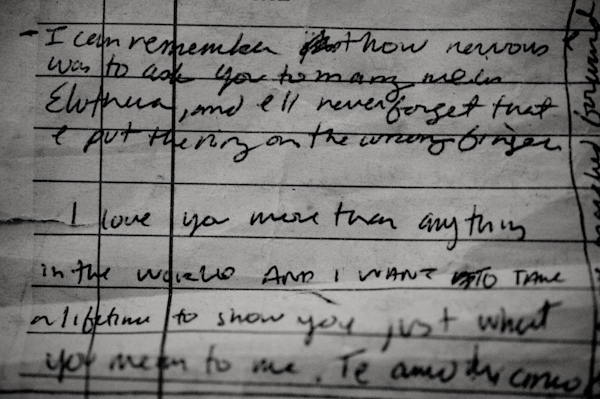 - I can remember just how nervous I
was to ask you to marry me in
Eluthera, and I'll never forget that
I put the ring on the wrong finger.
I love you more than anything
in the world AND I WANT TO TAKE
a lifetime to show you just what
you mean to me. Te amo
forward